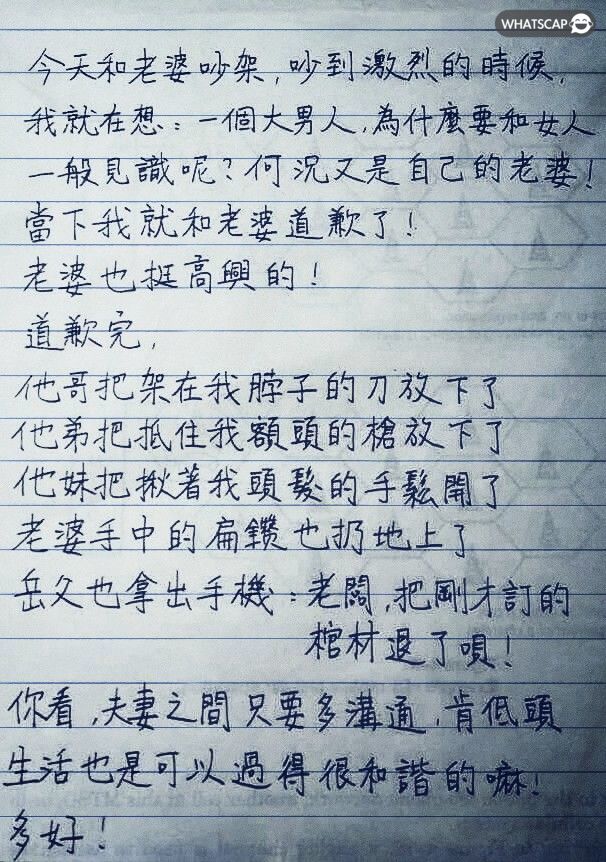 WHATSCAP
今天和老婆吵架,吵到激烈的時候,
我就在想:一個大男人,為什麼要和女人
一般見識呢?何況又是自己的老婆!
當下我就和老婆道歉了!
老婆也挺高興的!
道歉完,
他哥把架在我脖子的刀放下了
他弟把抵住我額頭的槍放下了
他妹把揪著我頭髮的手鬆開了
老婆手中的扁鑽也扔地上了
岳父也拿出手機:老闆,把剛才訂的
棺材退了唄!
你看,夫妻之間只要多溝通,肯低頭
生活也是可以過得很和諧的嘛!
多好!